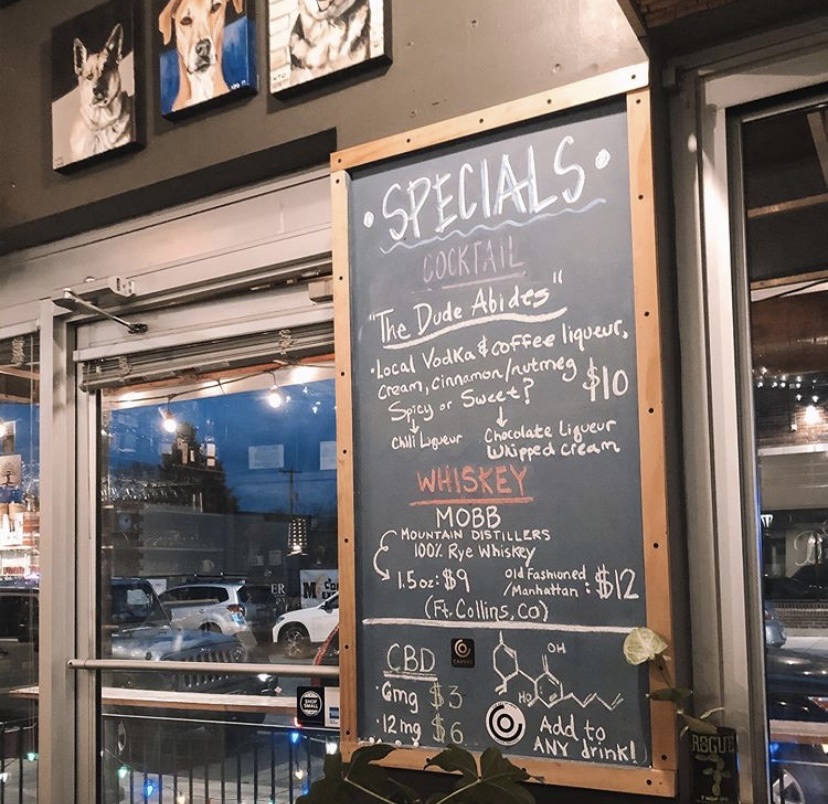 • SPECIALS •
COCKTAIL
"The Dude Abides"
• Local Vodka & coffee liqueur,
cream, cinnamon/nutmeg $10
Spicy or Sweet?
Chili Liqueur
Chocolate Liqueur
Whipped cream
WHISKEY
MOBB
MOUNTAIN DISTILLERS
100% Rye Whiskey
1.5oz: $9
old Fashioned
/Manhattan : $12
(Ft. Collins, CO)
CBD
• 6mg $3
• 12mg $6
OH
HO
Add to
ANY drink!
SHOP
SMALL
ROGUE